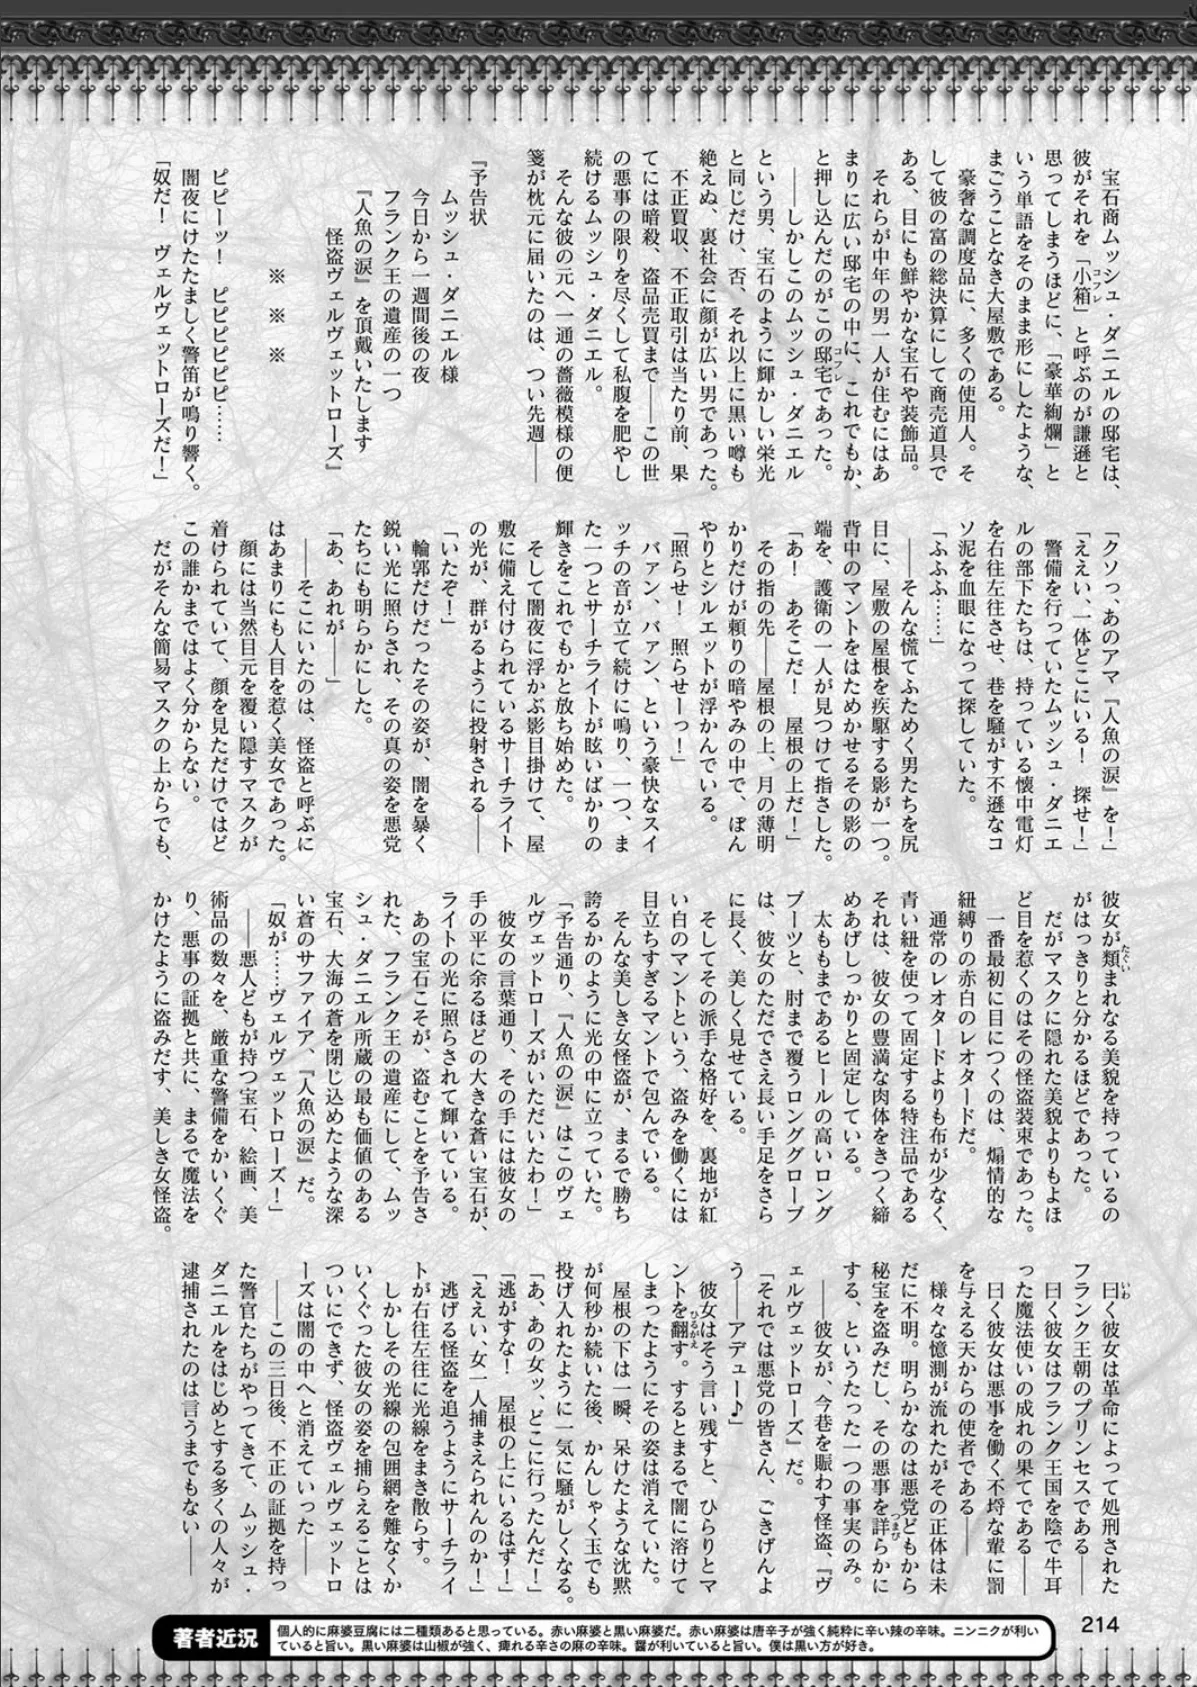 宝石商ムッシュ・ダニエルの邸宅は、
彼がそれを「小箱」と呼ぶのが謙遜と
思ってしまうほどに、「豪華絢爛」と
いう単語をそのまま形にしたような、
まごうことなき大屋敷である。
豪奢な調度品に、多くの使用人。そ
して彼の富の総決算にして商売道具で
ある、目にも鮮やかな宝石や装飾品。
それらが中年の男一人が住むにはあ
まりに広い邸宅の中に、これでもか、
と押し込んだのがこの邸宅であった。
――しかしこのムッシュ・ダニエル
という男、宝石のように輝かしい栄光
と同じだけ、否、それ以上に黒い噂も
絶えぬ、裏社会に顔が広い男であった。
不正買収、不正取引は当たり前、果
てには暗殺、盗品売買まで――この世
の悪事の限りを尽くして私腹を肥やし
続けるムッシュ・ダニエル。
そんな彼の元へ一通の薔薇模様の便
箋が枕元に届いたのは、つい先週――
『予告状
ムッシュ・ダニエル様
今日から一週間後の夜
フランク王の遺産の一つ
『人魚の涙』を頂戴いたします
怪盗ヴェルヴェットローズ』
※　※　※
ピピーッ！　ピピピピピピ……
闇夜にけたたましく警笛が鳴り響く。
「奴だ！　ヴェルヴェットローズだ！」
「クソっ、あのアマ『人魚の涙』を！」
「ええい、一体どこにいる！　探せ！」
警備を行っていたムッシュ・ダニエ
ルの部下たちは、持っている懐中電灯
を右往左往させ、巷を騒がす不遜なコ
ソ泥を血眼になって探していた。
「ふふふ……」
――そんな慌てふためく男たちを尻
目に、屋敷の屋根を疾駆する影が一つ。
背中のマントをはためかせるその影の
端を、護衛の一人が見つけて指さした。
「あ！　あそこだ！　屋根の上だ！」
その指の先――屋根の上、月の薄明
かりだけが頼りの暗やみの中で、ぼん
やりとシルエットが浮かんでいる。
「照らせ！　照らせーっ！」
バァン、バァン、という豪快なスイ
ッチの音が立て続けに鳴り、一つ、ま
た一つとサーチライトが眩いばかりの
輝きをこれでもかと放ち始めた。
そして闇夜に浮かぶ影目掛けて、屋
敷に備え付けられているサーチライト
の光が、群がるように投射される――
「いたぞ！」
輪郭だけだったその姿が、闇を暴く
鋭い光に照らされ、その真の姿を悪党
たちにも明らかにした。
「あ、あれが――」
――そこにいたのは、怪盗と呼ぶに
はあまりにも人目を惹く美女であった。
顔には当然目元を覆い隠すマスクが
着けられていて、顔を見ただけではど
この誰かまではよく分からない。
だがそんな簡易マスクの上からでも、
彼女が類まれなる美貌を持っているの
がはっきりと分かるほどであった。
だがマスクに隠れた美貌よりもよほ
ど目を惹くのはその怪盗装束であった。
一番最初に目につくのは、煽情的な
紐縛りの赤白のレオタードだ。
通常のレオタードよりも布が少なく、
青い紐を使って固定する特注品である
それは、彼女の豊満な肉体をきつく締
めあげしっかりと固定している。
太ももまであるヒールの高いロング
ブーツと、肘まで覆うロンググローブ
は、彼女のただでさえ長い手足をさら
に長く、美しく見せている。
そしてその派手な格好を、裏地が紅
い白のマントという、盗みを働くには
目立ちすぎるマントで包んでいる。
そんな美しき女怪盗が、まるで勝ち
誇るかのように光の中に立っていた。
「予告通り、『人魚の涙』はこのヴェ
ルヴェットローズがいただいたわ！」
彼女の言葉通り、その手には彼女の
手の平に余るほどの大きな蒼い宝石が、
ライトの光に照らされて輝いている。
あの宝石こそが、盗むことを予告さ
れた、フランク王の遺産にして、ムッ
シュ・ダニエル所蔵の最も価値のある
宝石、大海の蒼を閉じ込めたような深
い蒼のサファイア、『人魚の涙』だ。
「奴が……ヴェルヴェットローズ！」
――悪人どもが持つ宝石、絵画、美
術品の数々を、厳重な警備をかいくぐ
り、悪事の証拠と共に、まるで魔法を
かけたように盗みだす、美しき女怪盗。
曰く彼女は革命によって処刑された
フランク王朝のプリンセスである――
曰く彼女はフランク王国を陰で牛耳
った魔法使いの成れの果てである――
曰く彼女は悪事を働く不埒な輩に罰
を与える天からの使者である――
様々な憶測が流れたがその正体は未
だに不明。明らかなのは悪党どもから
秘宝を盗みだし、その悪事を詳らかに
する、というたった一つの事実のみ。
――彼女が、今巷を賑わす怪盗、『ヴ
ェルヴェットローズ』だ。
「それでは悪党の皆さん、ごきげんよ
う――アデュー♪」
彼女はそう言い残すと、ひらりとマ
ントを翻す。するとまるで闇に溶けて
しまったようにその姿は消えていた。
屋根の下は一瞬、呆けたような沈黙
が何秒か続いた後、かんしゃく玉でも
投げ入れたように一気に騒がしくなる。
「あ、あの女ッ、どこに行ったんだ！」
「逃がすな！　屋根の上にいるはず！」
「ええい、女一人捕まえられんのか！」
逃げる怪盗を追うようにサーチライ
トが右往左往に光線をまき散らす。
しかしその光線の包囲網を難なくか
いくぐった彼女の姿を捕らえることは
ついにできず、怪盗ヴェルヴェットロ
ーズは闇の中へと消えていった――
――この三日後、不正の証拠を持っ
た警官たちがやってきて、ムッシュ・
ダニエルをはじめとする多くの人々が
逮捕されたのは言うまでもない――
214
著者近況
個人的に麻婆豆腐には二種類あると思っている。赤い麻婆と黒い麻婆だ。赤い麻婆は唐辛子が強く純粋に辛い辣の辛味。ニンニクが利い
ていると旨い。黒い麻婆は山椒が強く、痺れる辛さの麻の辛味。醤が利いていると旨い。僕は黒い方が好き。